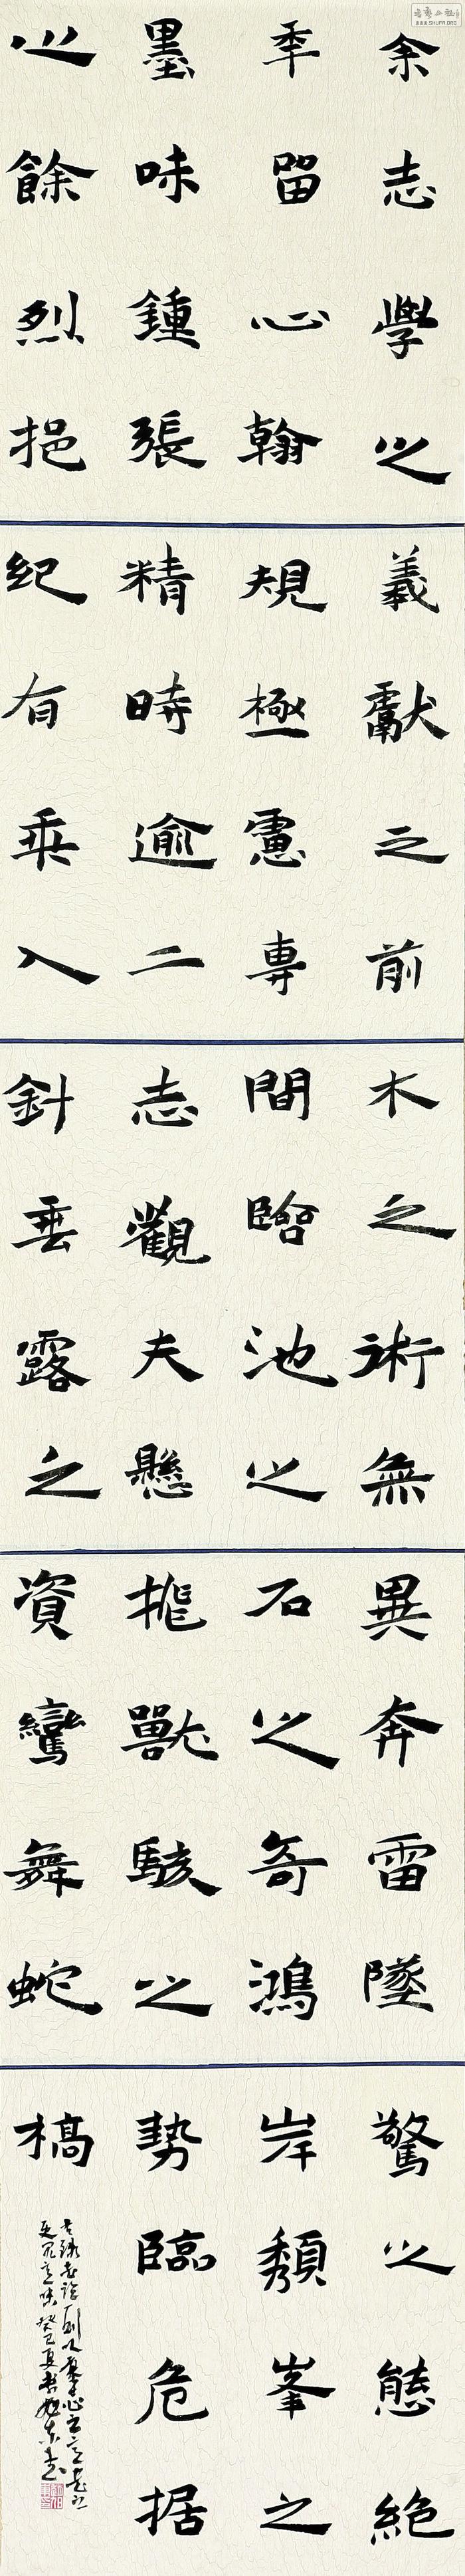 余志學之
秊留心翰
墨味鍾張
之餘烈挹
羲獻之前
規極慮專
精時逾二
紀有乖入
木之術無
間臨池之
志觀夫懸
針垂露之
異奔雷墜
石之奇鴻
飛獸駭之
資鸞舞蛇
驚之態絕
岸頹峯之
勢臨危据
槁
癸巳夏
WWW.SHUFA.ORG